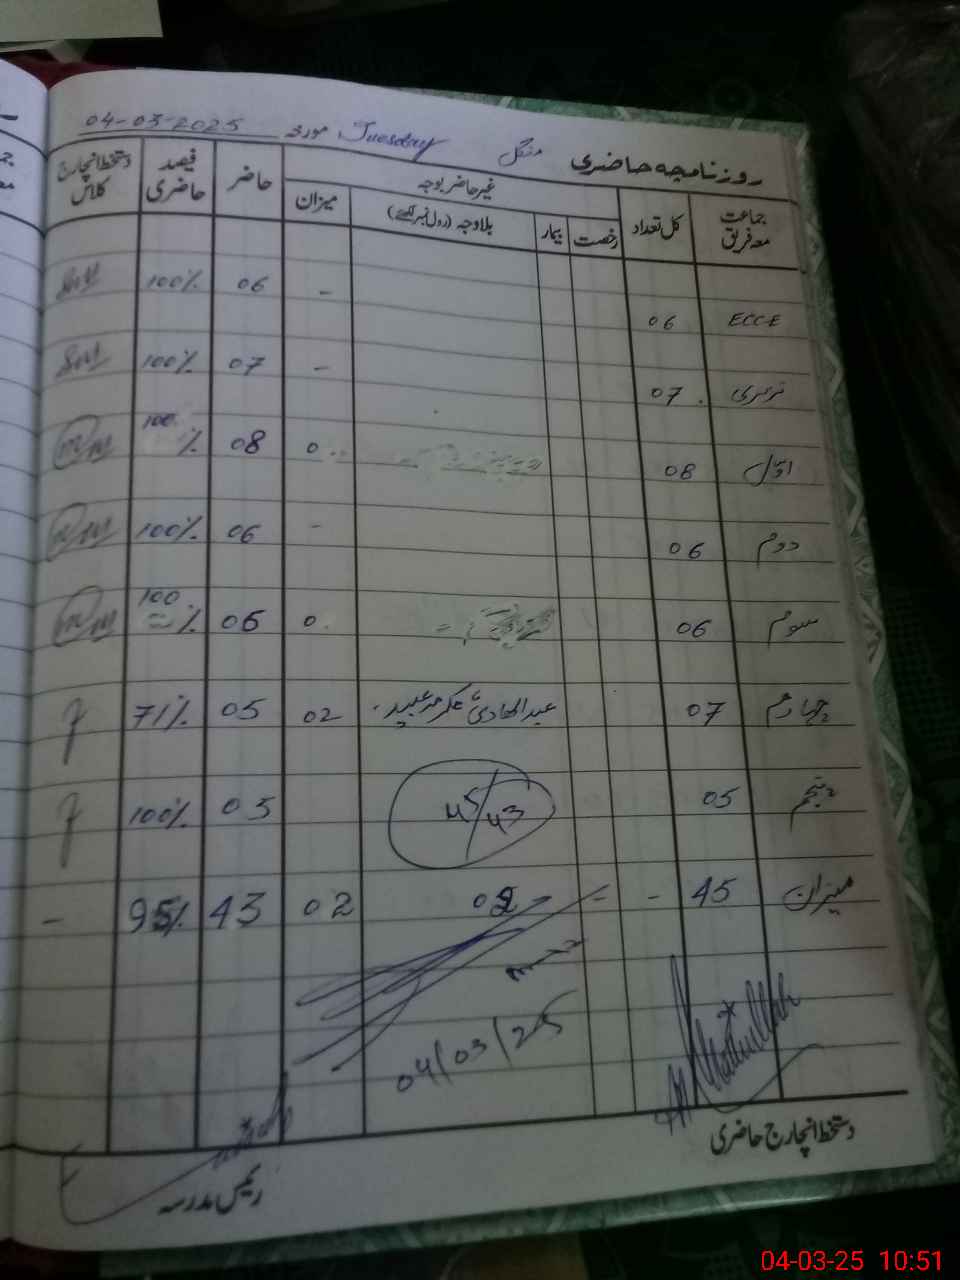 روزنامچہ حاضری منگل Tuesday مورخہ 04-03-2025
جماعت معہ فریق کل تعداد غیر حاضر بوجہ حاضر فیصد حاضری دستخط انچارج کلاس
رخصت بیمار بلاوجہ (رول نمبر لکھئے) میزان
ECCE 06 - 06 100%
نرسری 07 - 07 100%
اوّل 08 0 08 100%
دوم 06 - 06 100%
سوم 06 0 06 100%
چہارم 07 عبدالھادی، عکرمہ عبید 02 05 71%
پنجم 05 05 100%
45/43
میزان 45 - - 02 02 43 95% -
04/03/25
دستخط انچارج حاضری
رئیس مدرسہ
04-03-25 10:51